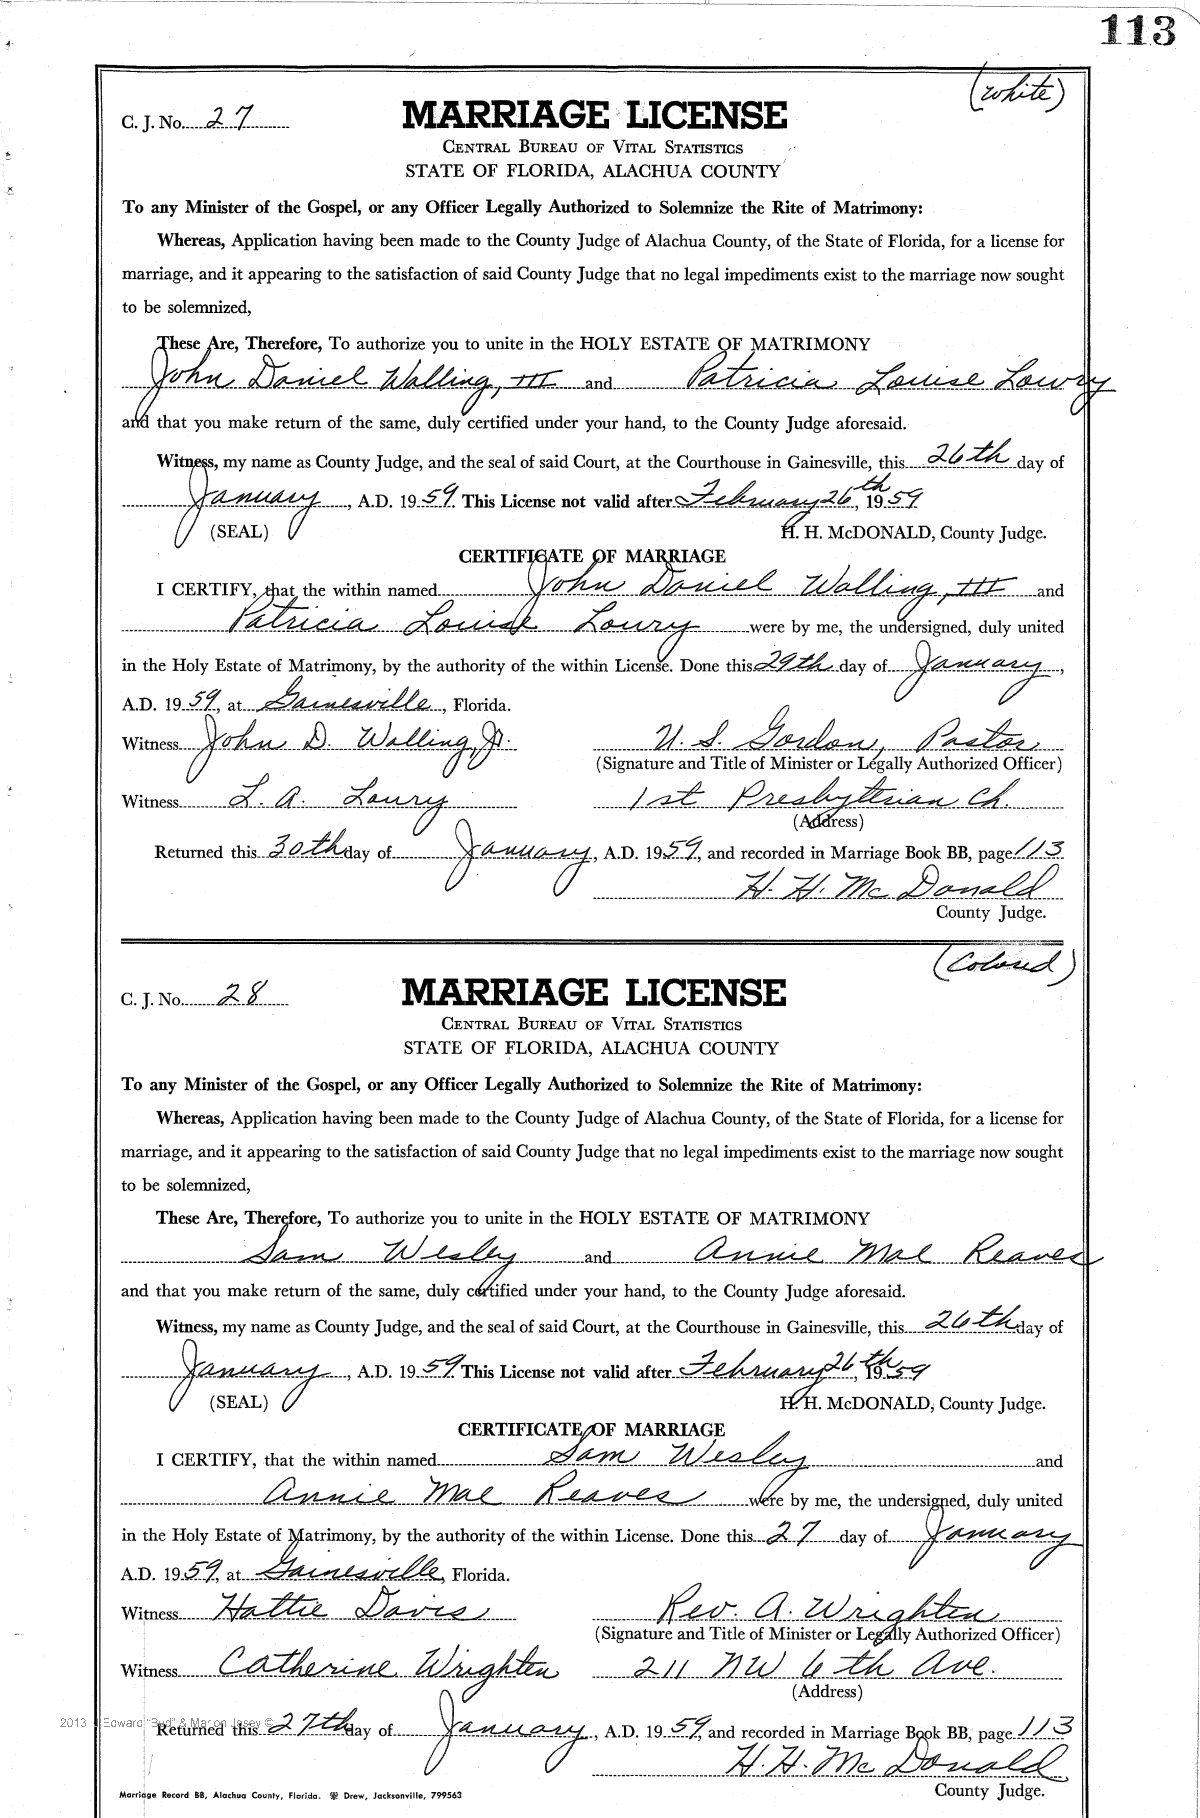 113
(White)
C. J. No. 27
MARRIAGE LICENSE
CENTRAL BUREAU OF VITAL STATISTICS
STATE OF FLORIDA, ALACHUA COUNTY
To any Minister of the Gospel, or any Officer Legally Authorized to Solemnize the Rite of Matrimony:
Whereas, Application having been made to the County Judge of Alachua County, of the State of Florida, for a license for
marriage, and it appearing to the satisfaction of said County Judge that no legal impediments exist to the marriage now sought
to be solemnized,
These Are, Therefore, To authorize you to unite in the HOLY ESTATE OF MATRIMONY
John Daniel Walling, III and Patricia Louise Lowry
and that you make return of the same, duly certified under your hand, to the County Judge aforesaid.
Witness, my name as County Judge, and the seal of said Court, at the Courthouse in Gainesville, this 26th day of
January, A.D. 1959. This License not valid after February 26th, 1959
(SEAL) H. H. McDONALD, County Judge.
CERTIFICATE OF MARRIAGE
I CERTIFY, that the within named John Daniel Walling, III and
Patricia Louise Lowry were by me, the undersigned, duly united
in the Holy Estate of Matrimony, by the authority of the within License. Done this 29th day of January,
A.D. 1959, at Gainesville, Florida.
Witness John D. Walling, Jr. U. S. Gordon, Pastor
(Signature and Title of Minister or Legally Authorized Officer)
Witness L. A. Lowry 1st Presbyterian Ch.
(Address)
Returned this 30th day of January, A.D. 1959, and recorded in Marriage Book BB, page 113
H. H. McDonald
County Judge.
(Colored)
C. J. No. 28
MARRIAGE LICENSE
CENTRAL BUREAU OF VITAL STATISTICS
STATE OF FLORIDA, ALACHUA COUNTY
To any Minister of the Gospel, or any Officer Legally Authorized to Solemnize the Rite of Matrimony:
Whereas, Application having been made to the County Judge of Alachua County, of the State of Florida, for a license for
marriage, and it appearing to the satisfaction of said County Judge that no legal impediments exist to the marriage now sought
to be solemnized,
These Are, Therefore, To authorize you to unite in the HOLY ESTATE OF MATRIMONY
Sam Wesley and Annie Mae Reaves
and that you make return of the same, duly certified under your hand, to the County Judge aforesaid.
Witness, my name as County Judge, and the seal of said Court, at the Courthouse in Gainesville, this 26th day of
January, A.D. 1959. This License not valid after February 26th, 1959
(SEAL) H. H. McDONALD, County Judge.
CERTIFICATE OF MARRIAGE
I CERTIFY, that the within named Sam Wesley and
Annie Mae Reaves were by me, the undersigned, duly united
in the Holy Estate of Matrimony, by the authority of the within License. Done this 27 day of January
A.D. 1959, at Gainesville, Florida.
Witness Hattie Davis Rev. A. Wrighten
(Signature and Title of Minister or Legally Authorized Officer)
Witness Catherine Wrighten 211 NW 6th Ave.
(Address)
2013 Edward "Bud" & Marion Jasey ©
Returned this 27th day of January, A.D. 1959, and recorded in Marriage Book BB, page 113
H. H. McDonald
County Judge.
Marriage Record BB, Alachua County, Florida. Drew, Jacksonville, 799563